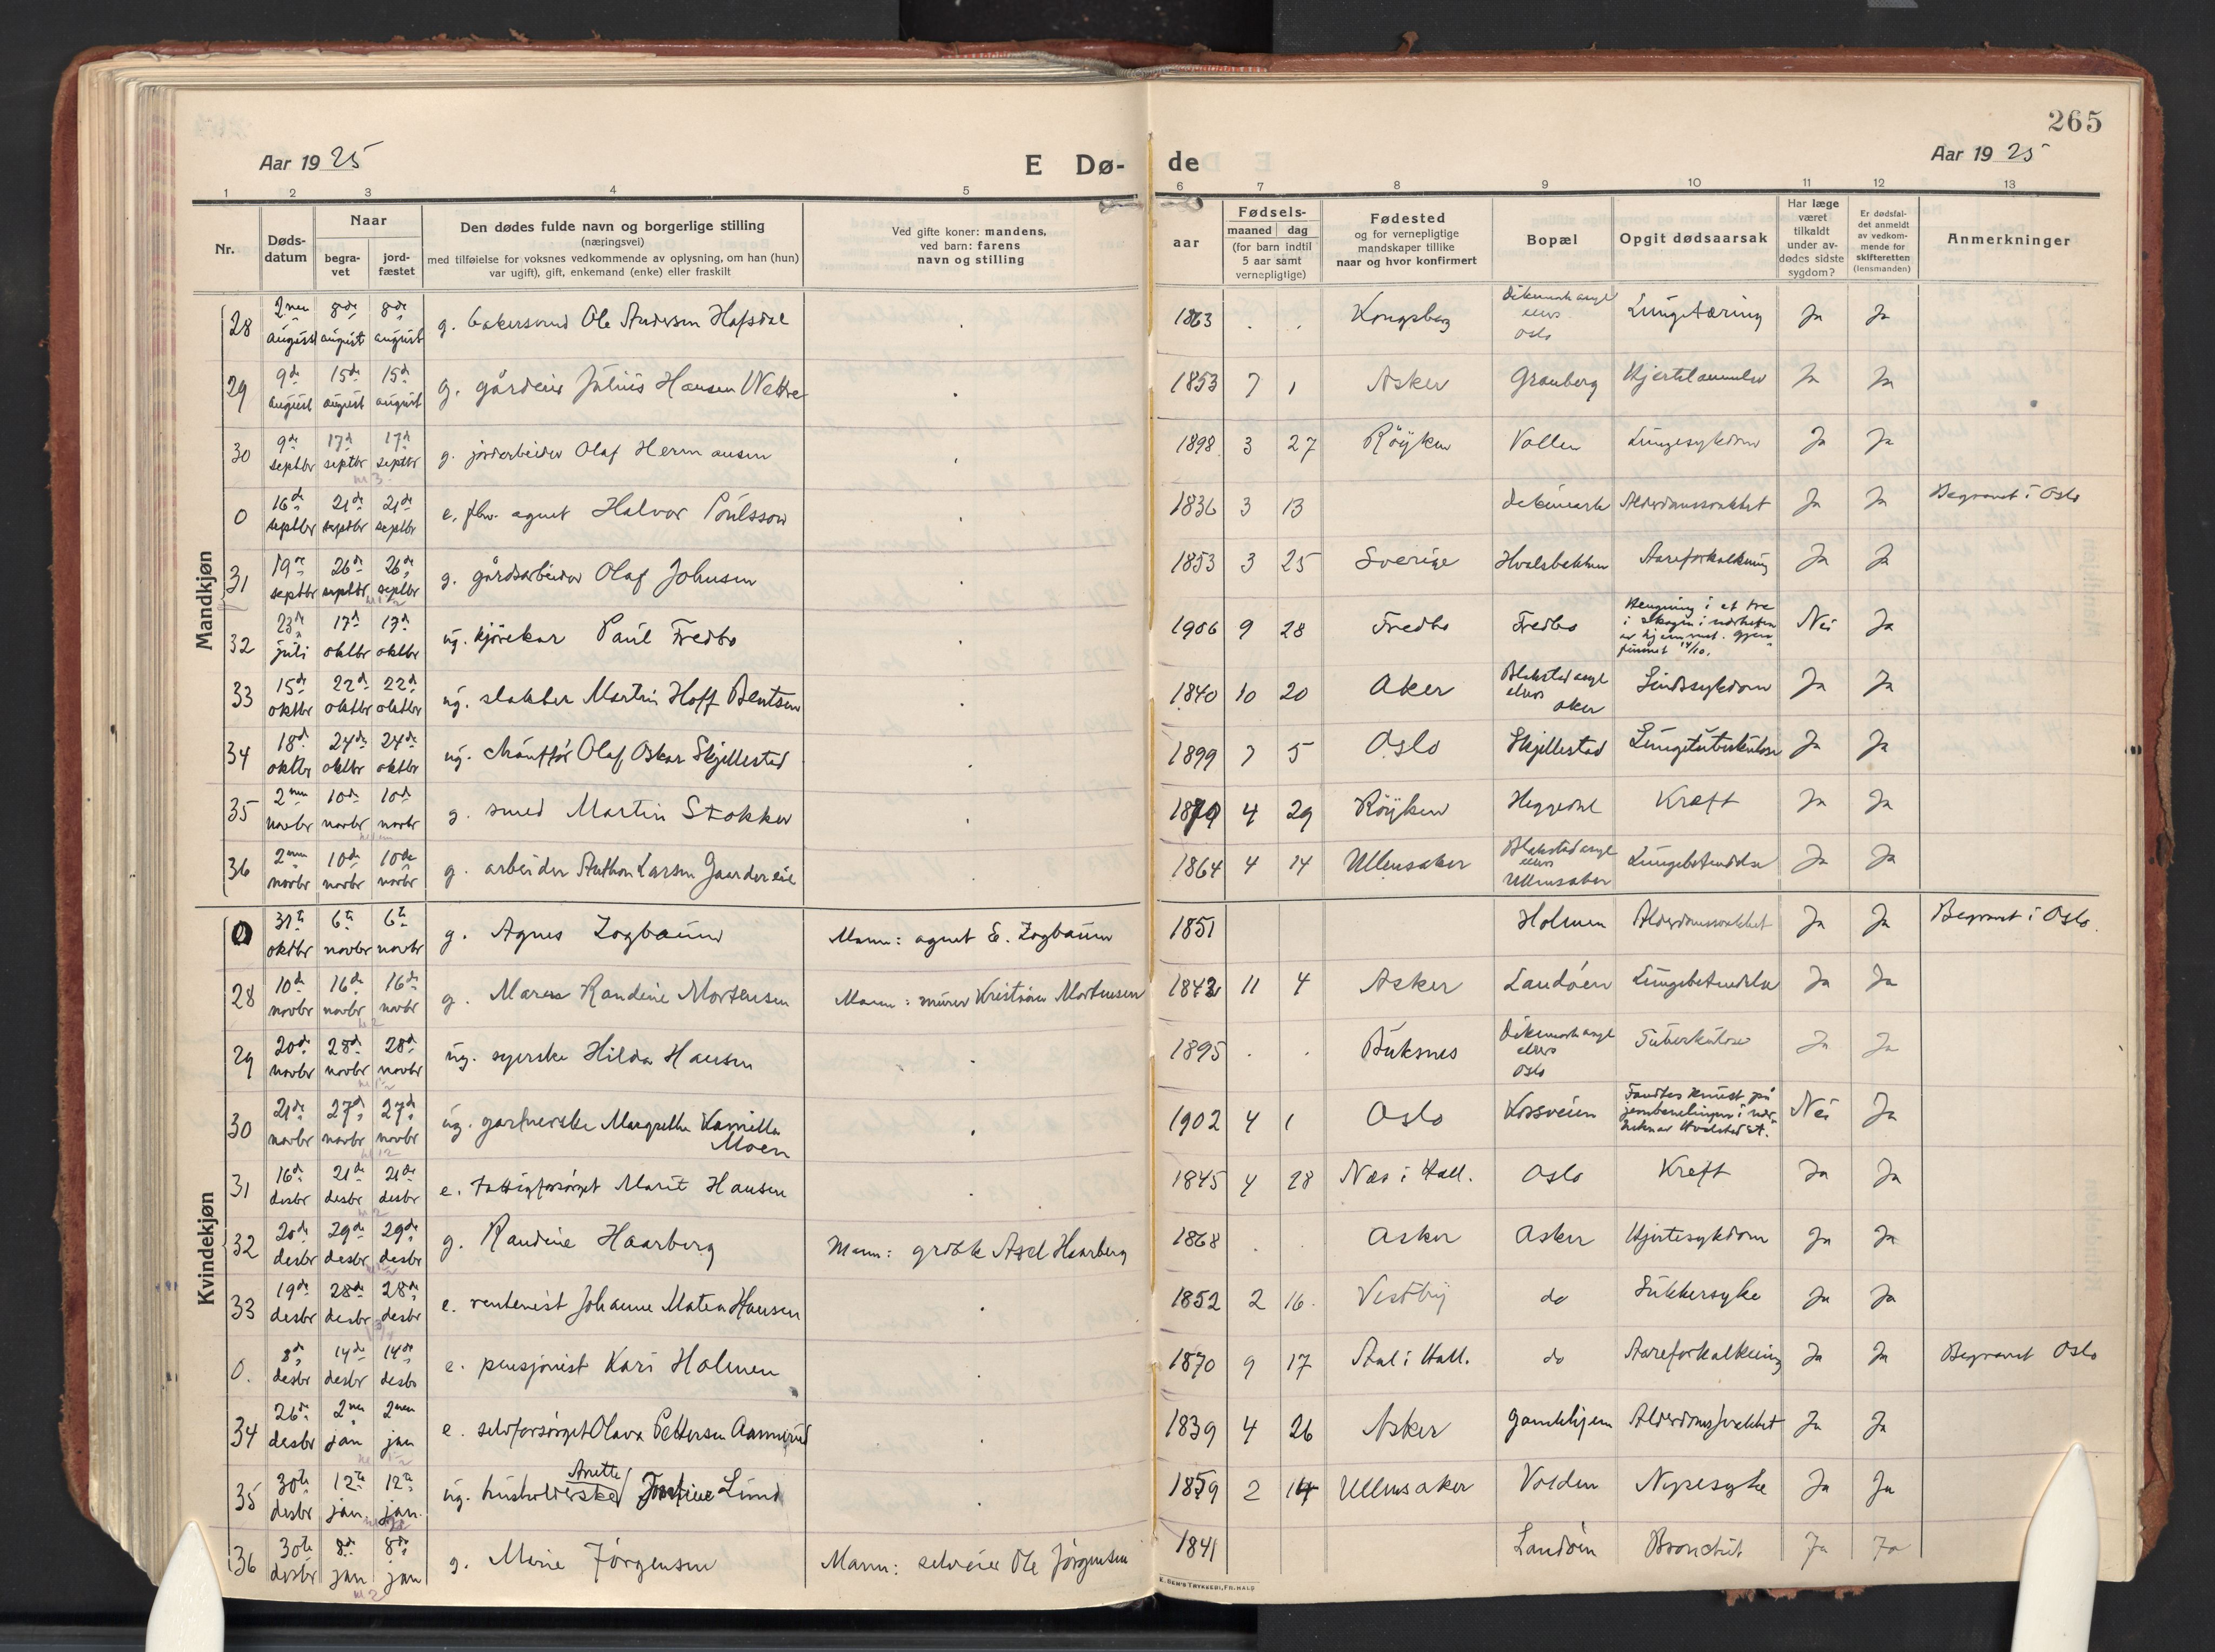 265
Aar 19 25
E Dø-
de
Aar 19 25
1 2 3 4 5 6 7 8 9 10 11 12 13
Nr.
Døds-
datum
Naar
begra-
vet
jord-
fæstet
Den dødes fulde navn og borgerlige stilling
(næringsvei)
med tilføielse for voksnes vedkommende av oplysning, om han (hun)
var ugift), gift, enkemand (enke) eller fraskilt
Ved gifte koner: mandens,
ved barn: farens
navn og stilling
aar
Fødsels-
maaned dag
(for barn indtil
5 aar samt
vernepligtige)
Fødested
og for vernepligtige
mandskaper tillike
naar og hvor konfirmert
Bopæl
Opgit dødsaarsak
Har læge
været
tilkaldt
under av-
dødes sidste
sygdom?
Er dødsfal-
det anmeldt
av vedkom-
mende for
skifteretten
(lensmanden)
Anmerkninger
Mandkjøn
28 2nen august 8de august 8de august g. bakersvend Ole Andersen Hafsdal 1863 . . Kongsberg Dikemark asyl ellers Oslo Lungetæring Ja Ja
29 9de august 15de august 15de august g. gårdeier Julius Hansen Wettre 1853 7 1 Asker Granberg Hjertelammelse Ja Ja
30 9de septbr 17de septbr 17de septbr g. jordarbeider Olaf Hermansen 1898 3 27 Röyken Vollen Lungesykdom Ja Ja
0 16de septbr 21de septbr 21de septbr e. fhv. agent Halvor Poulsson 1836 3 13 Alderdomssvakhet Ja Ja Begravet i Oslo
31 19de septbr 26de septbr 26de septbr g. gårdsarbeider Olaf Johnsen 1853 3 25 Sverige Hvalsbakken Aareforkalkning Ja Ja
32 23de juli 17de oktbr 17de oktbr ug. kjörekar Paul Fredbo 1906 9 28 Fredbo Fredbo Hengning i et tre i skogen i nærheten av hjemmet. Gjenfunnet 14/10. Nei Ja
33 15de oktbr 22de oktbr 22de oktbr ug. slakter Martin Hoff Bentsen 1840 10 20 Aker Blakstad asyl ellers Aker Sindssykdom Ja Ja
34 18de oktbr 24de oktbr 24de oktbr ug. chaufför Olaf Oskar Skjellestad 1899 7 5 Oslo Skjellestad Lungetuberkulose Ja Ja
35 2nen novbr 10de novbr 10de novbr g. smed Martin Stokker 4 29 Röyken Heggedal Kræft Ja Ja
36 2nen novbr 10de novbr 10de novbr g. arbeider Anthon Larsen 1864 4 14 Ullensaker Blakstad asyl ellers Ullensaker Lungebetendelse Ja Ja
Kvindekjøn
0 31te oktbr 6te novbr 6te novbr g. Agnes Zogbaum Mann: agent E. Zogbaum 1851 Holmen Alderdomssvakhet Ja Ja Begravet i Oslo.
28 10de novbr 16de novbr 16de novbr g. Maren Randine Mortensen Mann: murer Kristian Mortensen 1843 11 4 Asker Landöen Lungebetendelse Ja Ja
29 20de novbr 28de novbr 28de novbr ug. syerske Hilda Hansen 1895 . . Buksnes Dikemark asyl ellers Oslo Tuberkulose Ja Ja
30 21de novbr 27de novbr 27de novbr ug. gartnerske Margrethe Kamilla Moen 1902 4 1 Oslo Korsveien Fandtes knust på jernbanelinjen i nærheten av Hvalstad st. Nei Ja
31 16de desbr 21de desbr 21de desbr e. fattigforsörget Marit Hansen 1845 4 28 Næs i Hall. Oslo Kræft Ja Ja
32 20de desbr 29de desbr 29de desbr g. Randine Haarberg Mann: Axel Haarberg 1868 . . Asker Asker Hjertesykdom Ja Ja
33 19de desbr 28de desbr 28de desbr e. rentenist Johanne Matea Hansen 1852 2 16. Vestby do Sukkersyke Ja Ja
0. 8de desbr 14de desbr 14de desbr e. pensjonist Kari Holmen 1870 9 17 Aal i Hall. do Aareforkalkning Ja Ja Begravet Oslo
34 26de desbr 2nen jan 2nen jan e. selvforsörget Olava Pettersen Aamerud 1839 4 26 Asker Gamlehjem Alderdomssvakhet Ja Ja
35 30te desbr 12te jan 12te jan. ug. husholderske Anette Lund 1859 2 14 Ullensaker Volden Nyresyke Ja Ja
36 30te desbr 8de jan 8de jan g. Mine Jörgensen Mann: selveier Ole Jörgensen 1841 Landöen Bronchit Ja Ja
E. SEM'S TRYKKERI, FR.HALD